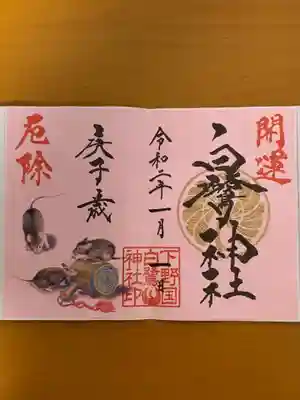 開運
白鷺神社
令和二年一月
一日
庚子歳
厄除
下野国
白鷺山
神社印